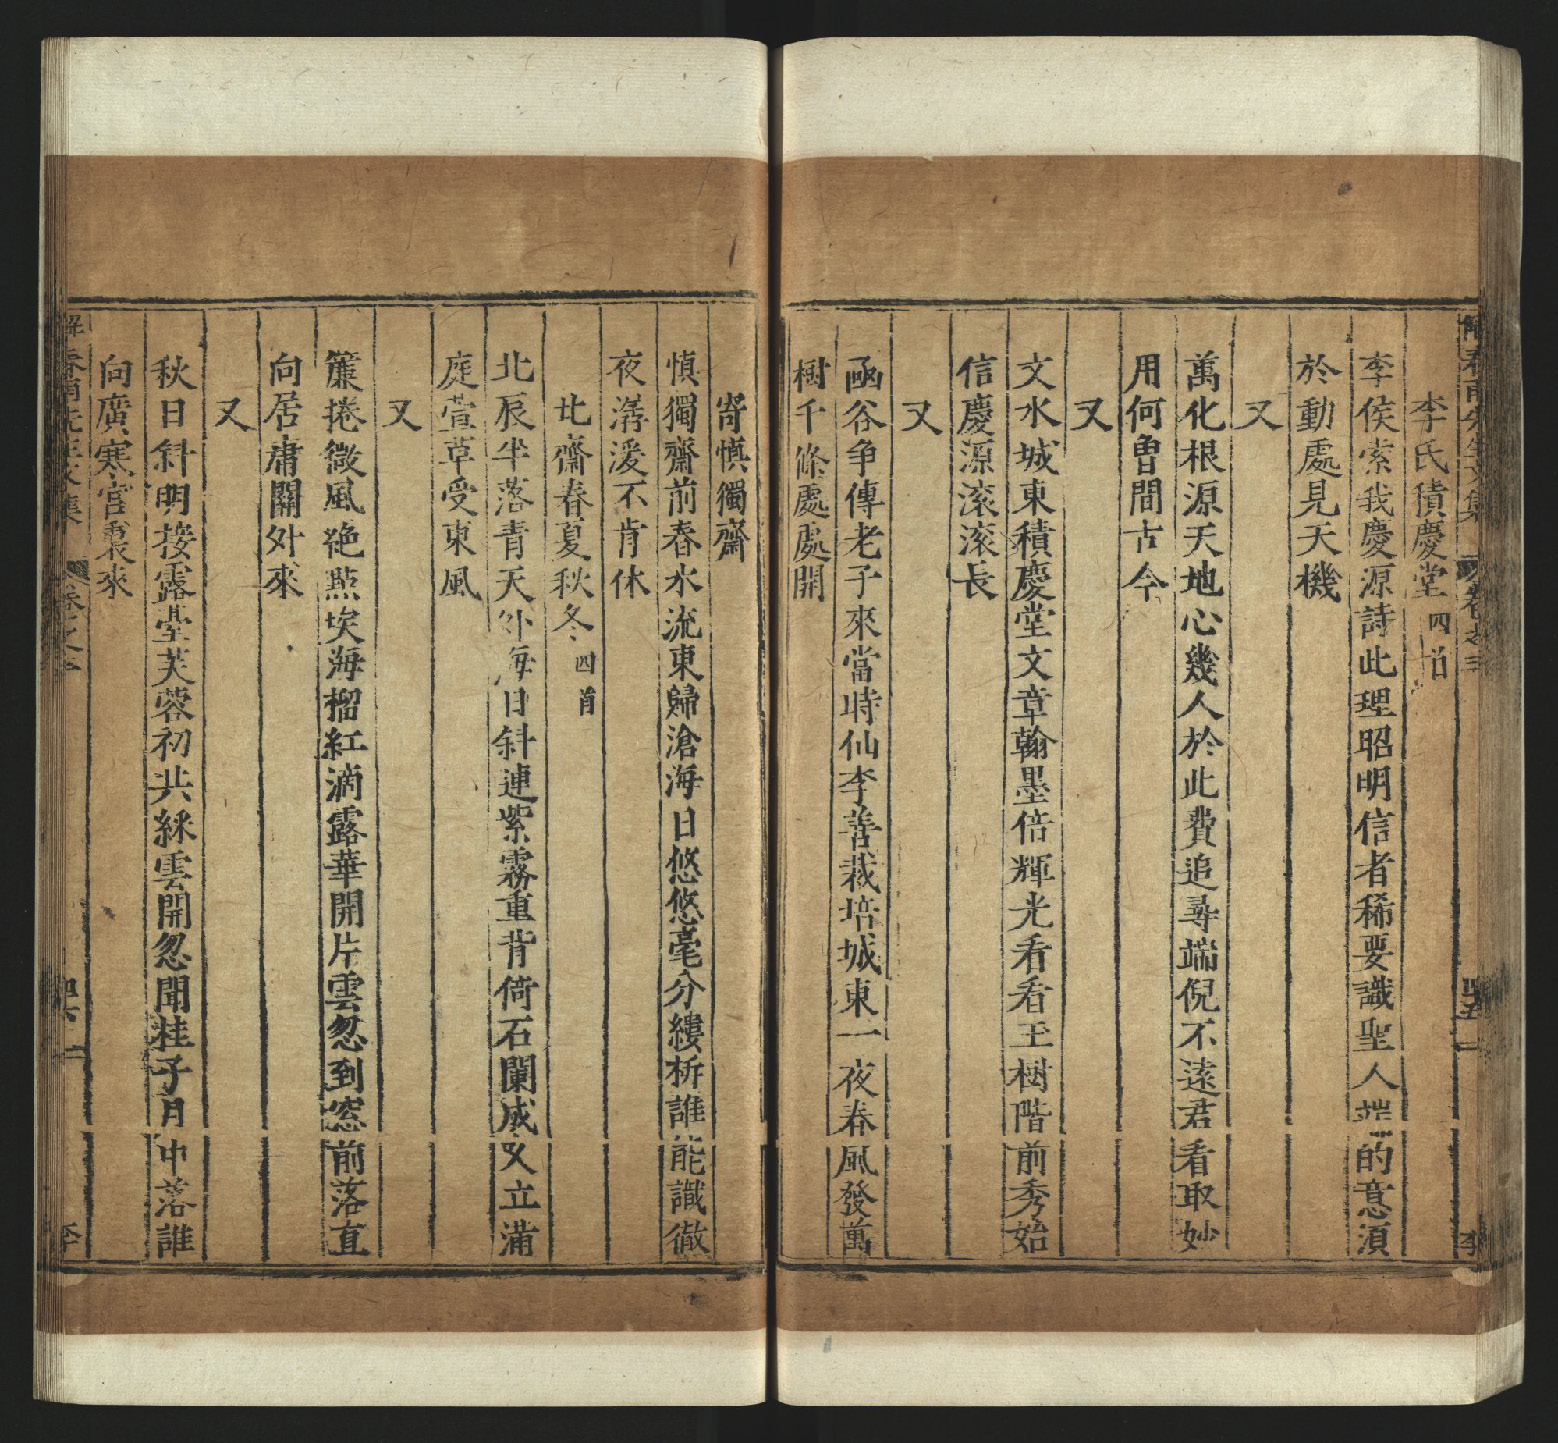 李氏積慶堂四首
李侯索我慶源詩此理昭明信者稀要識聖人端的意須
於動處見天機
又
萬化根源天地心幾人於此費追尋端倪不遠君看取妙
用何曽間古今
又
文水城東積慶堂文章翰墨倍輝光看看玉樹階前秀始
信慶源滚滚長
又
凾谷争傳老子來當時仙李善栽培城東一夜春風發萬
樹千條處處開
寄慎獨齋
慎獨齋前春水流東歸滄海日悠悠毫分縷析誰能識徹
夜潺湲不肯休
北齋春夏秋冬四首
北辰半落青天外海日斜連紫霧重背倚石闌成久立滿
庭萱草受東風
又
簾捲微風絶㸃埃海榴紅滴露華開片雲忽到窓前落直
向居庸關外來
又
秋日斜明接露臺芙蓉初共綵雲開忽聞桂子月中落誰
向廣寒宫裏來
解春雨先生文集